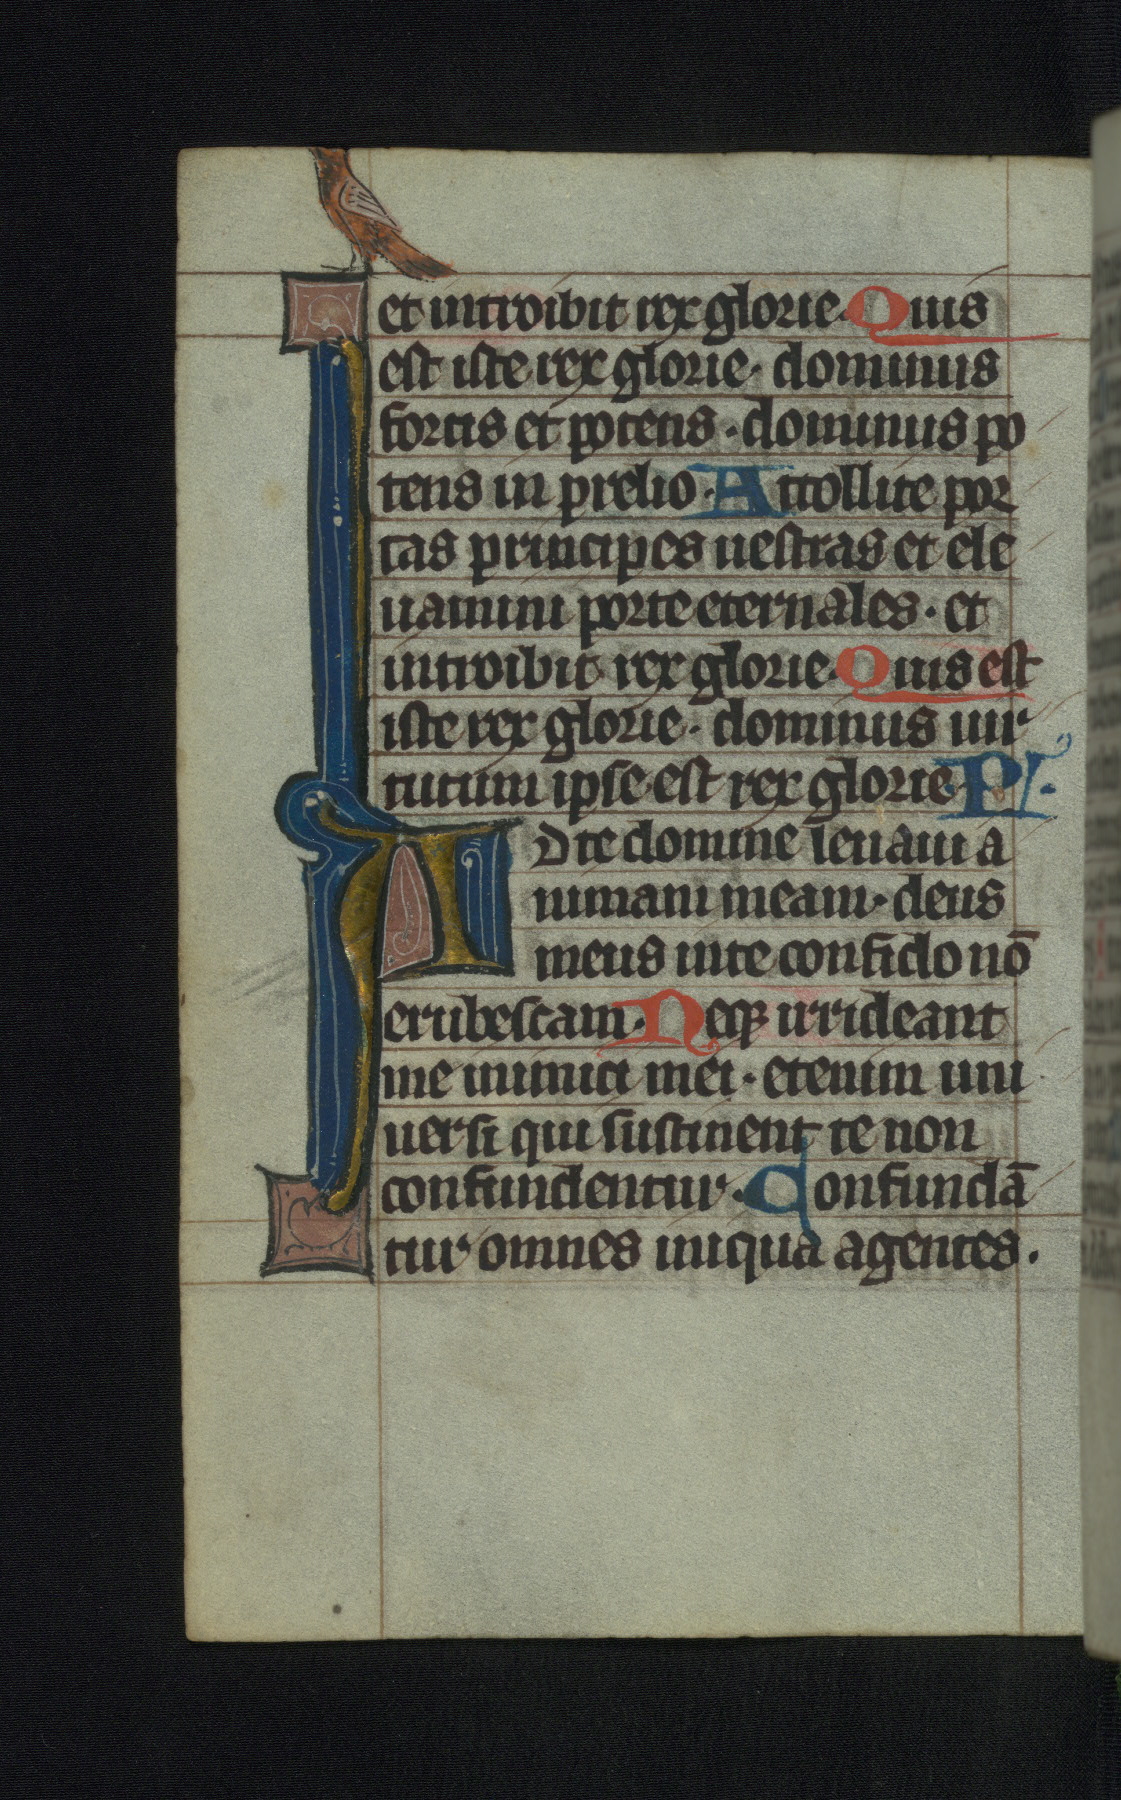 et introibit rex glorie. Quis
est iste rex glorie. dominus
fortis et potens. dominus po
tens in prelio. Attollite por
tas principes uestras et ele
uamini porte eternales. et
introibit rex glorie. Quis est
iste rex glorie. dominus uir
tutum ipse est rex glorie. Ps.
AD te domine leuaui a
nimam meam. deus
meus in te confido nō
erubescam. Neqꝫ irrideant
me inimici mei. etenim uni
uersi qui sustinent te non
confundentur. Confundā
tur omnes iniqua agentes.